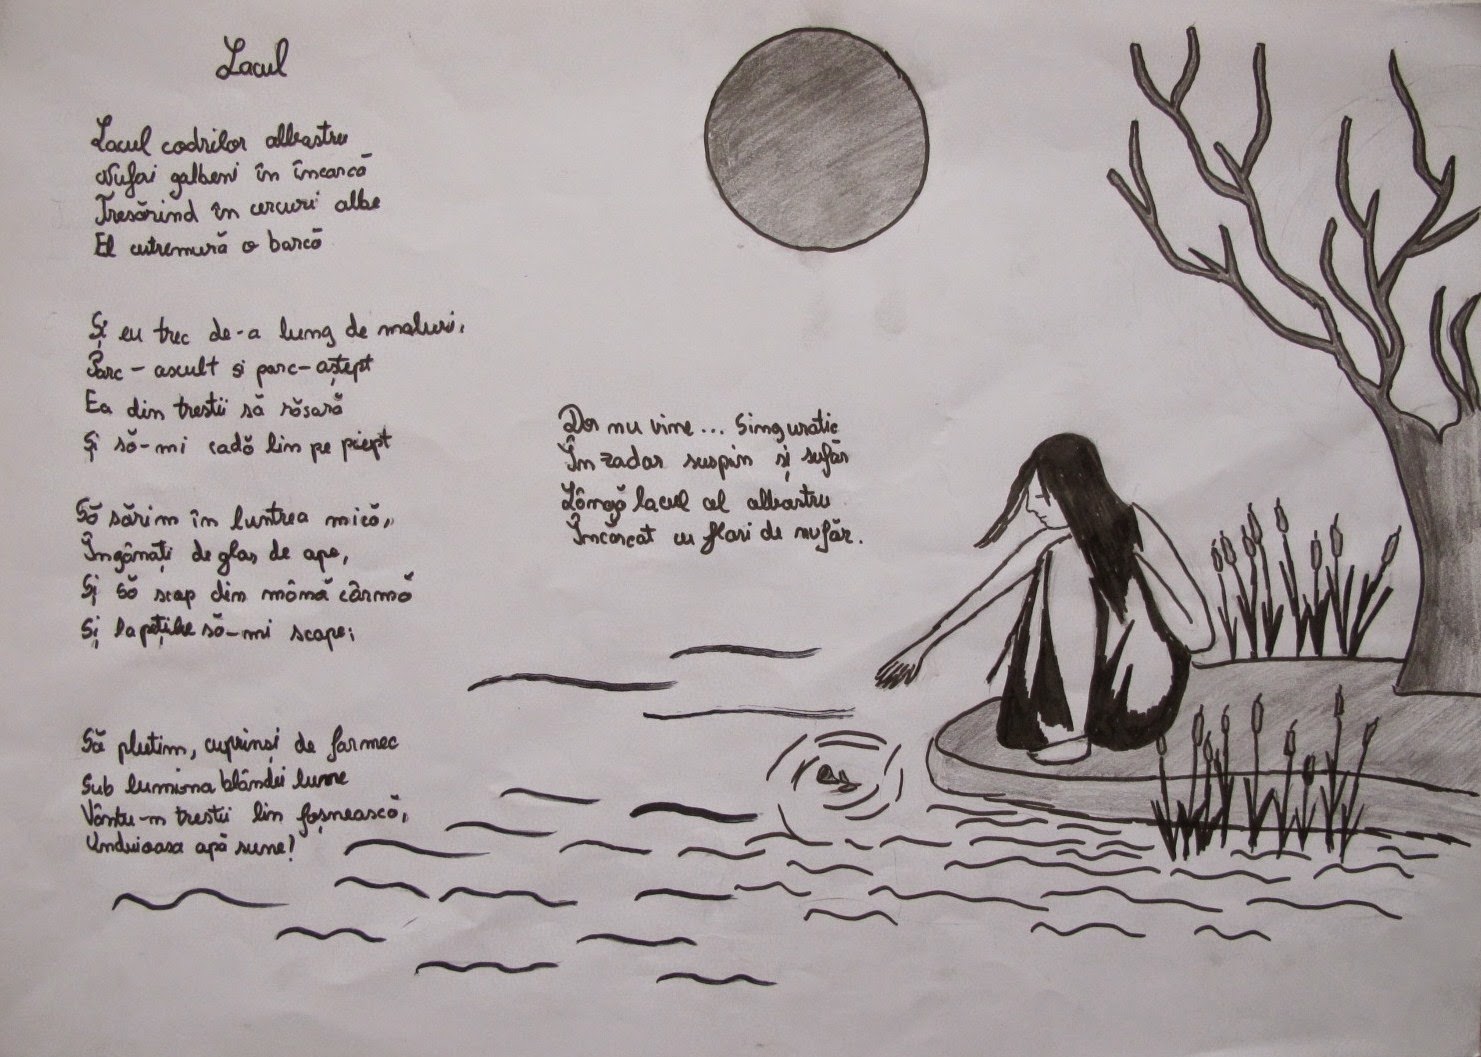 Lacul
Lacul codrilor albastru
Nuferi galbeni în încarcă
Tresărind în cercuri albe
El cutremură o barcă
Și eu trec de-a lung de maluri,
Parc-ascult și parc-aștept
Ea din trestii să răsară
Și să-mi cadă lin pe piept
Să sărim în luntrea mică,
Îngânați de glas de ape,
Și să scap din mână cârma
Și lopețile să-mi scape;
Să plutim, cuprinși de farmec
Sub lumina blândei lune
Vântu-n trestii lin foșnească,
Unduioasa apă sune!
Dar nu vine... Singuratic
În zadar suspin și sufăr
Lângă lacul cel albastru
Încărcat cu flori de nufăr.